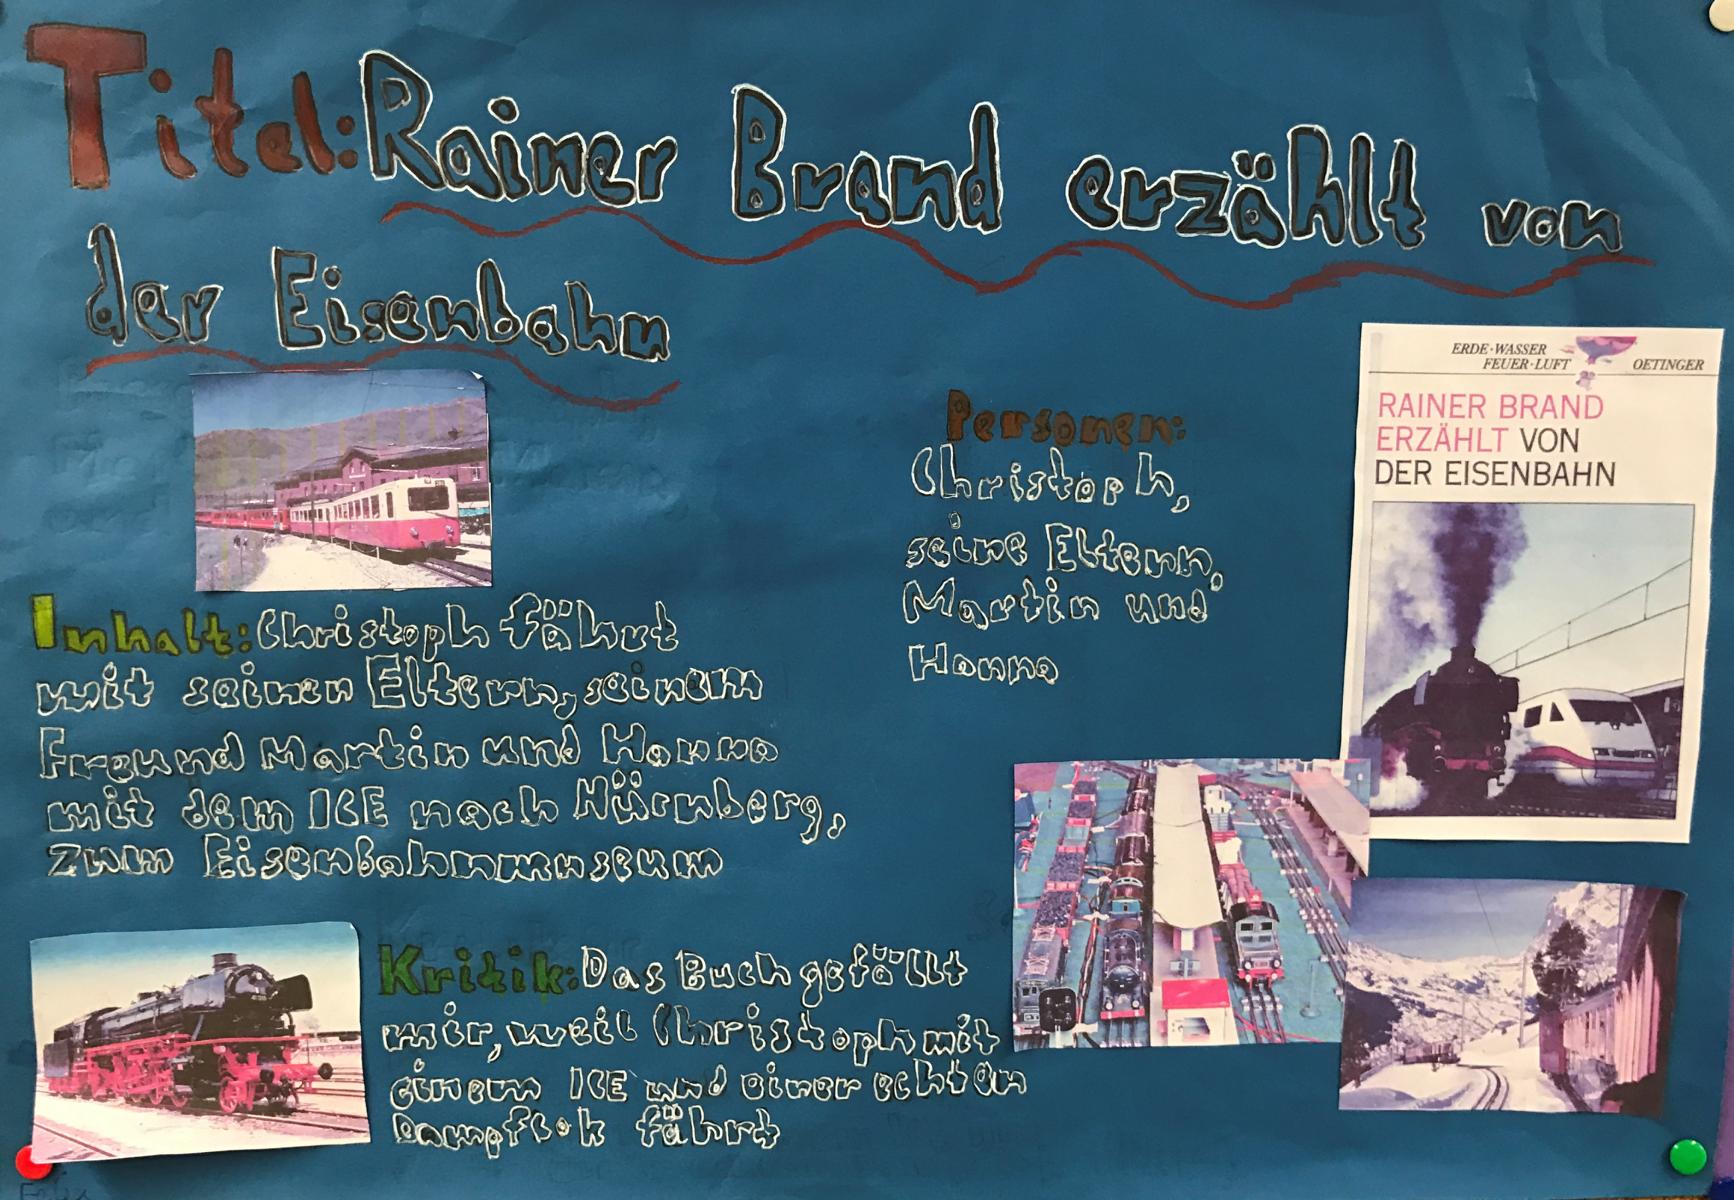 Titel: Rainer Brand erzählt von
der Eisenbahn
ERDE·WASSER
FEUER·LUFT
OETINGER
RAINER BRAND
ERZÄHLT VON
DER EISENBAHN
Personen:
Christoph,
seine Eltern,
Martin und
Hanna
Inhalt: Christoph fährt
mit seinen Eltern, seinem
Freund Martin und Hanna
mit dem ICE nach Nürnberg,
zum Eisenbahnmuseum
Kritik: Das Buch gefällt
mir, weil Christoph mit
einem ICE und einer echten
Dampflok fährt